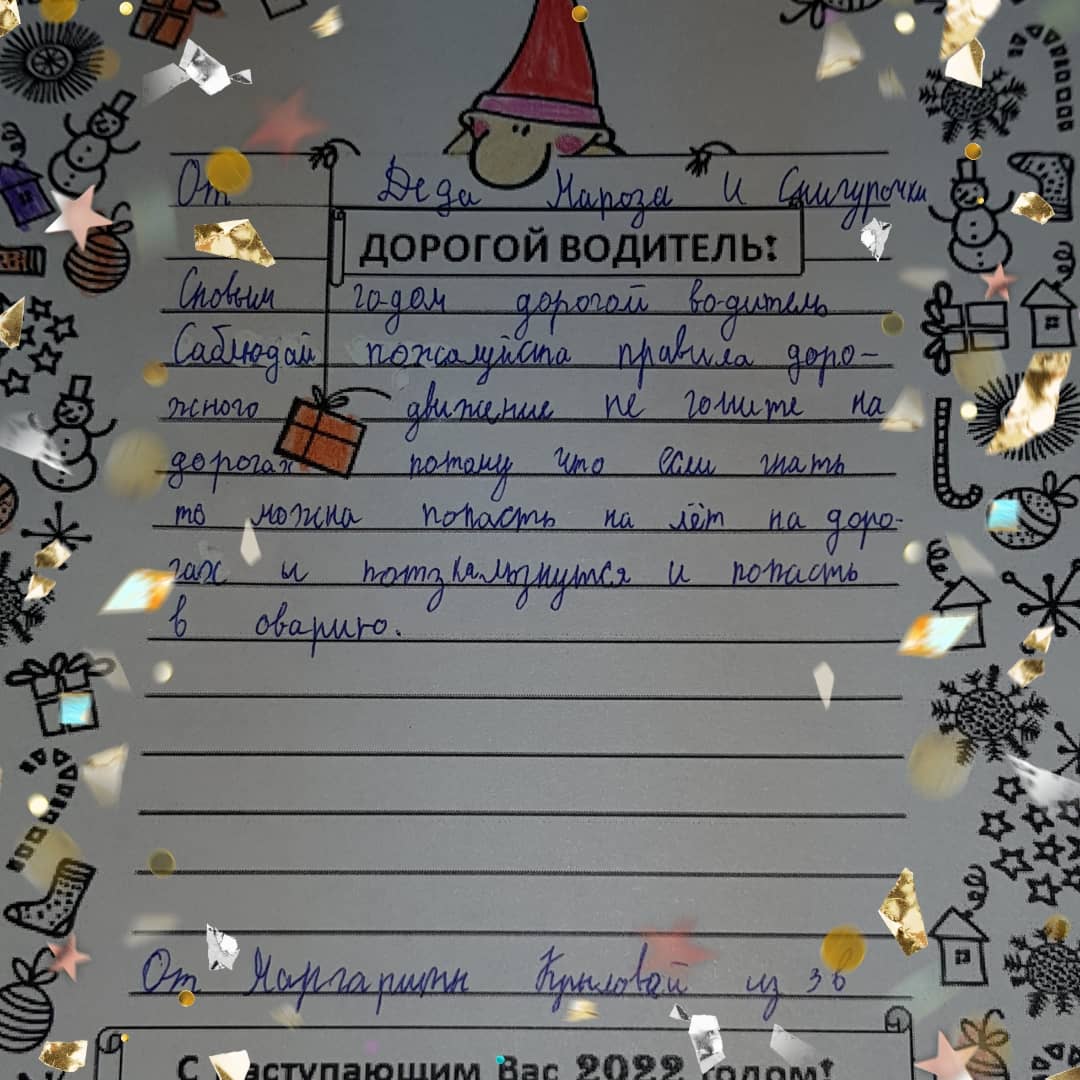 От Деда Мароза и Снигурочки
ДОРОГОЙ ВОДИТЕЛЬ!
Сновым годам дорогой водитель
Саблюдай пожалуйста правила доро-
жного движение не гоните на
дорогах потаму что если гнать
то можна попасть на лёт на доро-
гах и потзкальзнутся и попасть
в оварию.
От Маргариты Крыловай из 3 в
С аступающим Вас 2022 годом!